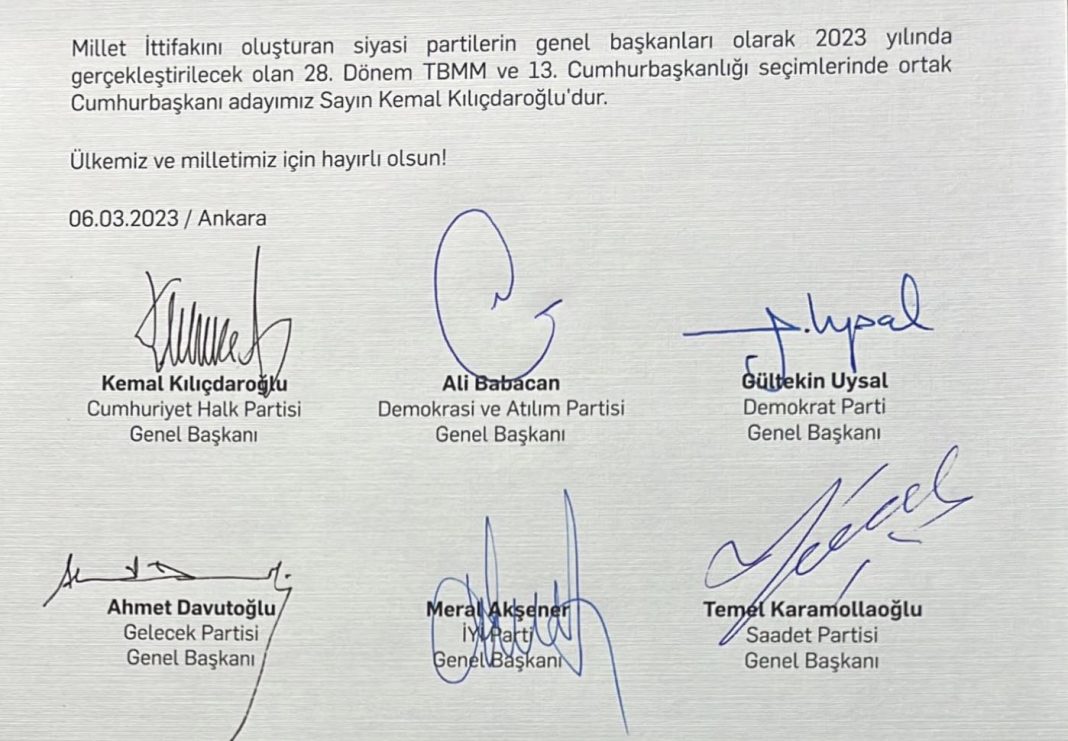 Millet İttifakını oluşturan siyasi partilerin genel başkanları olarak 2023 yılında
gerçekleştirilecek olan 28. Dönem TBMM ve 13. Cumhurbaşkanlığı seçimlerinde ortak
Cumhurbaşkanı adayımız Sayın Kemal Kılıçdaroğlu'dur.
Ülkemiz ve milletimiz için hayırlı olsun!
06.03.2023 / Ankara
Kemal Kılıçdaroğlu
Cumhuriyet Halk Partisi
Genel Başkanı
Ali Babacan
Demokrasi ve Atılım Partisi
Genel Başkanı
Gültekin Uysal
Demokrat Parti
Genel Başkanı
Ahmet Davutoğlu
Gelecek Partisi
Genel Başkanı
Meral Akşener
İYİ Parti
Genel Başkanı
Temel Karamollaoğlu
Saadet Partisi
Genel Başkanı